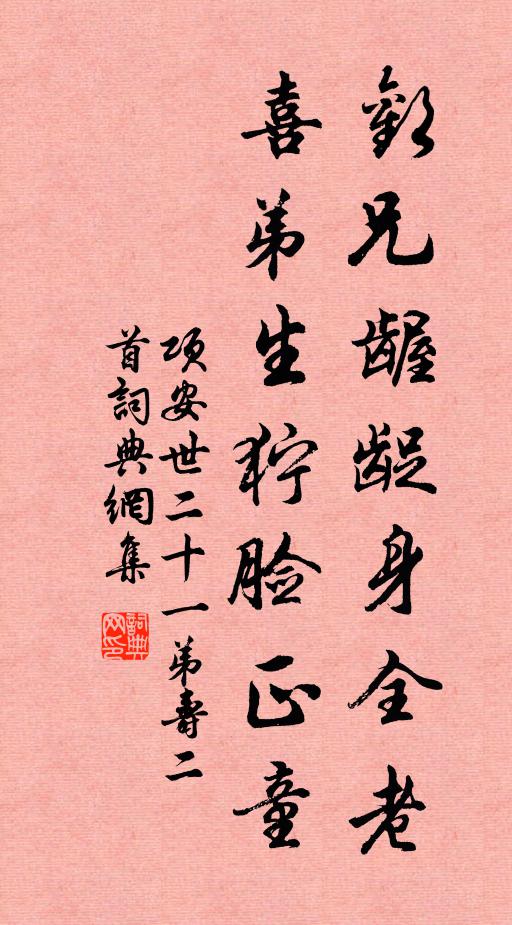 兄齷齪身全老
喜弟生狞脸正童
项安世二十一弟壽二
首詞典網集
詞典网印